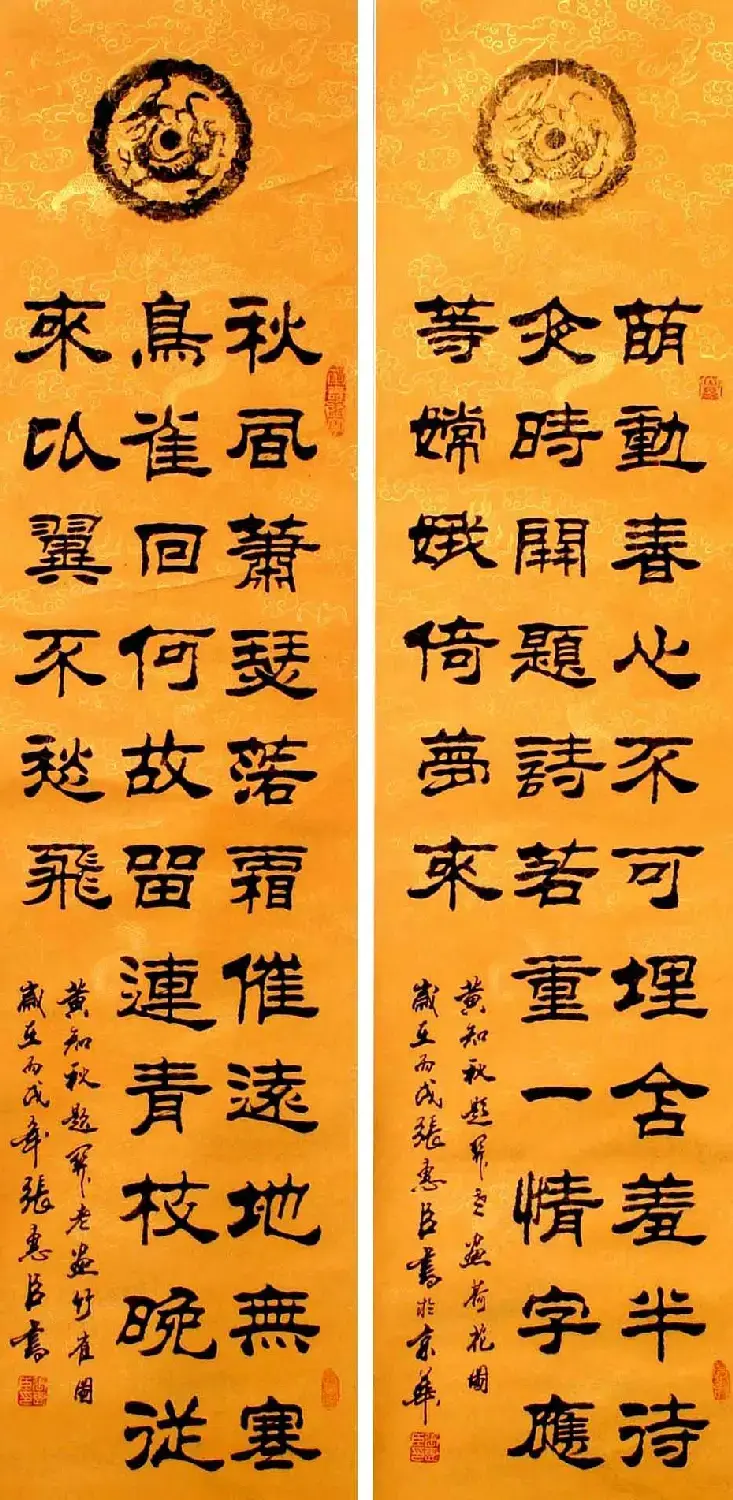 萌動春心不可埋含羞半待
夜時開題詩若重一情字應
等嫦娥倚夢來
黃知秋題老畫荷花圖
歲在丙戌張惠臣書於京華
秋風蕭瑟落霜催遠地無寒
鳥雀回何故留連青枝晚從
來比翼不愁飛
黃知秋題老畫竹雀圖
歲在丙戌年張惠臣書